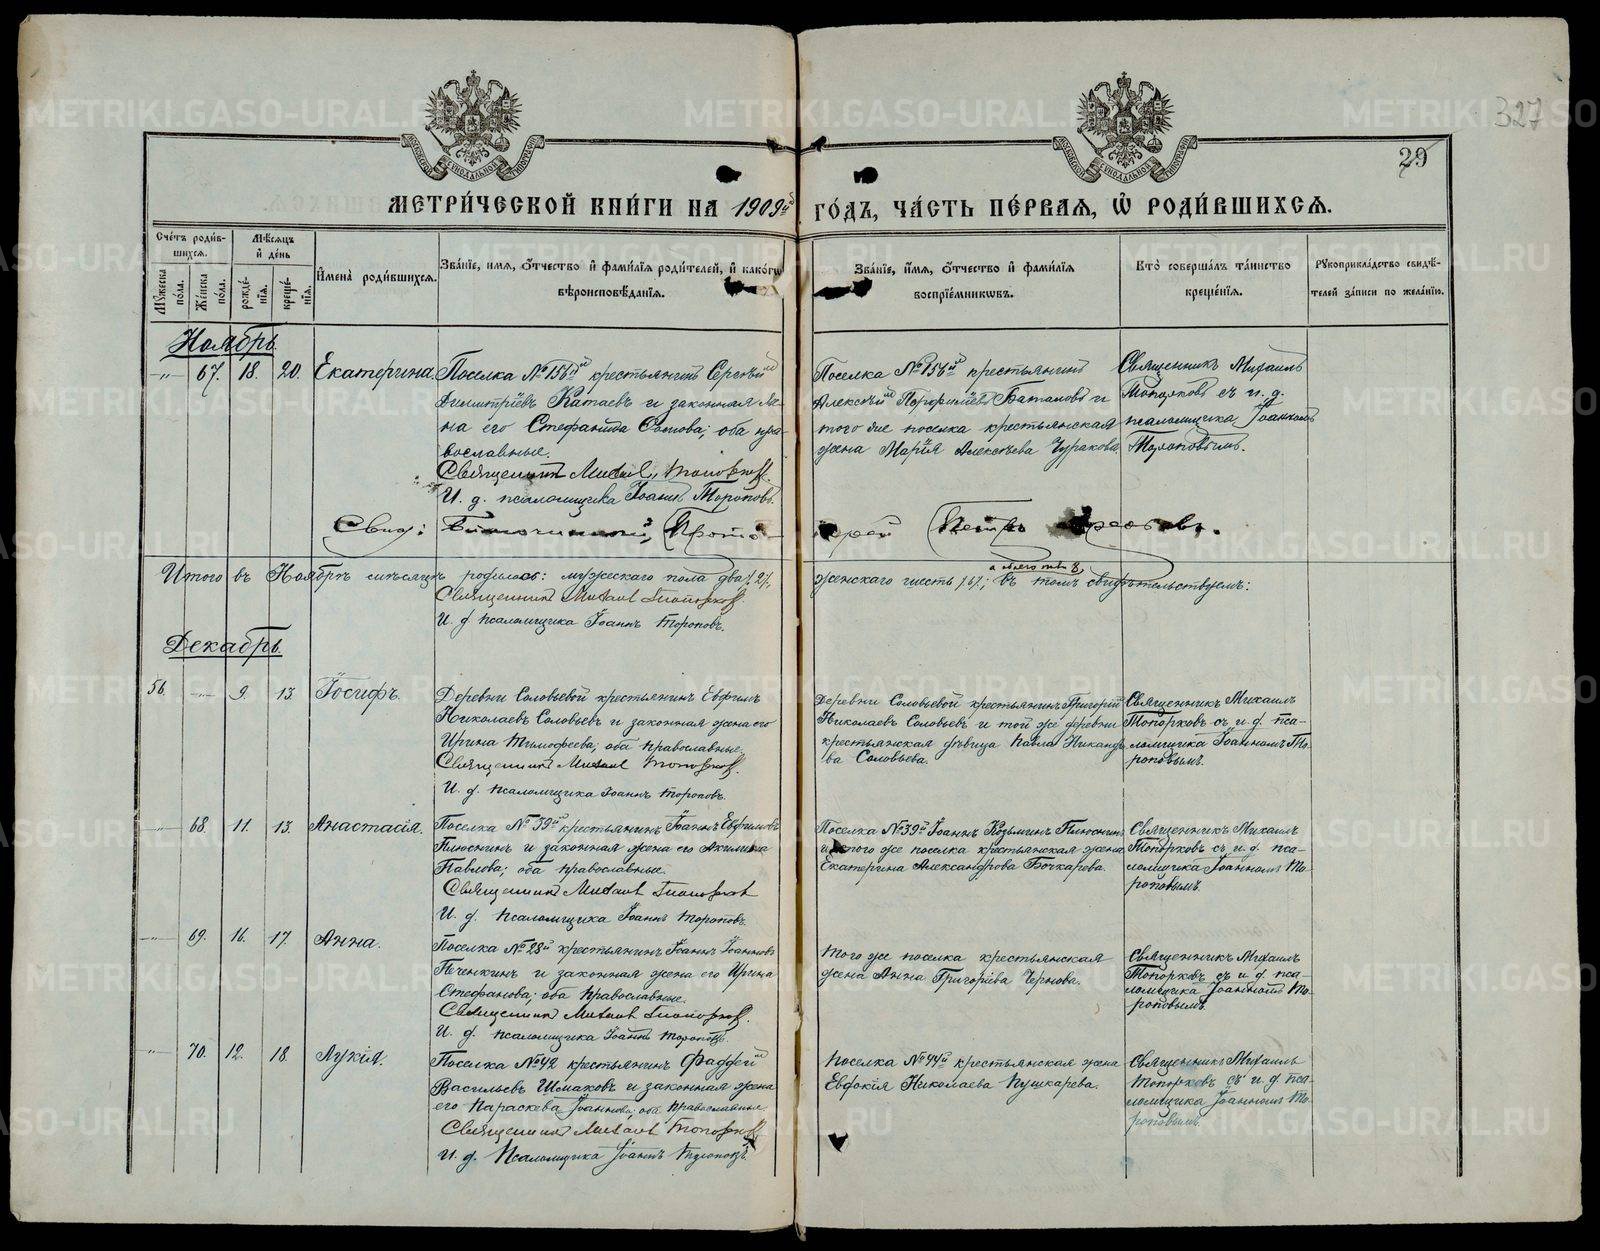 327
29
МЕТРИ́ЧЕСКОЙ КНИ́ГИ НА 1909й ГО́ДЪ, ЧА́СТЬ ПЕ́РВАЯ, Ѡ҆ РОДИ́ВШИХСѦ.
Сче́тъ роди́в-
шихсѧ.
Мꙋ́жеска по́ла.
Же́нска по́ла.
Мѣ́сѧцъ
и҆ де́нь
рожде́-
нїѧ.
креще́-
нїѧ.
И҆мена̀ роди́вшихсѧ.
Зва́нїе, и҆мѧ, ѻ҆́тчество и҆ фами́лїѧ роди́телей, и҆ како́гѡ
вѣроисповѣ́данїѧ.
Зва́нїе, и҆́мѧ, ѻ҆́тчество и҆ фами́лїѧ
воспрїе́мникѡвъ.
Кто̀ соверша́лъ та́инство
креще́нїѧ.
Рꙋкоприкла́дство свидѣ́-
телей за́писи по жела́нїю.
Ноябрь
-„- 67. 18. 20. Екатерина.
Поселка №156й крестьянинъ Сергѣй
Димитріевъ Катаевъ и законная же-
на его Стефанида ; оба пра-
вославные.
Священникъ Михаилъ Топорковъ.
И. д. псаломщика Іоаннъ Тороповъ.
Поселка №156й крестьянинъ
Алексѣй Порфиліевъ Баталовъ и
того же поселка крестьянская
жена Марія Алексѣева Чуракова
Священникъ Михаилъ
Топорковъ съ и. д.
псаломщика Іоанномъ
Тороповымъ.
Свид: Благочинный, Прото-
іерей Петръ
Итого въ Ноябрѣ мѣсяцѣ родилось: мужескаго пола два /2/,
женскаго шесть /6/; а всего 8, въ томъ свидѣтельствуемъ:
Священникъ Михаилъ Топорковъ.
И. д. псаломщика Іоаннъ Тороповъ.
Декабрь
56. -„- 9. 13 Іосифъ.
Деревни Соловьевой крестьянинъ Евфимъ
Николаевъ Соловьевъ и законная жена его
Ирина Тимофеева; оба православные.
Священникъ Михаилъ Топорковъ.
И. д. псаломщика Іоаннъ Тороповъ.
Деревни Соловьевой крестьянинъ Григорій
Николаевъ Соловьевъ и той же деревни
крестьянская дѣвица Павла Никандро-
ва Соловьева.
Священникъ Михаилъ
Топорковъ съ и. д. пса-
ломщика Іоанномъ То-
роповымъ.
-„- 68. 11. 13. Анастасія.
Поселка №39й крестьянинъ Іоаннъ Евфимовъ
Плюснинъ и законная жена его Акилина
Павлова; оба православные.
Священникъ Михаилъ Топорковъ
И. д. псаломщика Іоаннъ Тороповъ.
Поселка №39й Іоаннъ Козьминъ Плюснинъ
и того же поселка крестьянская жена
Екатерина Александрова Бочкарева.
Священникъ Михаилъ
Топорковъ съ и. д. пса-
ломщика Іоанномъ То-
роповымъ.
-„- 69. 16. 17. Анна.
Поселка №28й крестьянинъ Іоаннъ Іоанновъ
Печенкинъ и законная жена его Ирина
Стефанова; оба православные.
Священникъ Михаилъ Топорковъ.
И. д. псаломщика Іоаннъ Тороповъ.
того же поселка крестьянская
жена Анна Григоріева Чернова.
Священникъ Михаилъ
Топорковъ съ и. д. пса-
ломщика Іоанномъ То-
роповымъ.
-„- 70. 12. 18. Лукія.
Поселка №42 крестьянинъ Фаддей
Васильевъ Шмаковъ и законная жена
его Параскева Іоаннова; оба православные.
Священникъ Михаилъ Топорковъ
И. д. Псаломщика Іоаннъ Тороповъ.
Поселка №44й крестьянская жена
Евдокія Николаева Пушкарева.
Священникъ Михаилъ
Топорковъ съ и. д. пса-
ломщика Іоанномъ То-
роповымъ.